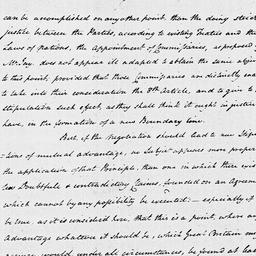 can be accomplished on any other point, than the doing strict
justice between the Parties, according to existing Treaties and the
Laws of Nations, the Appointment of Commissaries, as proposed
Mr. Jay, does not appear ill adapted to obtain the same object
to this point, provided that those Commissaries are distinctly
to take into their consideration the 8th Article, and to give to
stipulation such effect, as they shall think it ought in justice
have, in the formation of a new Boundary line.
But, if the negotiation should lead to new Stipu
-tions of mutual advantage, no Subject appears more proper
the application of that Principle, than one in which there exist
two Doubtful & contradictory Claims, founded on an Agreem
which cannot by any possibility be executed:— especially if
be true, as it is considered here, that this is a point where any
Advantage whatever it should be, which Great Britain
would, under all circumstances, be found at least